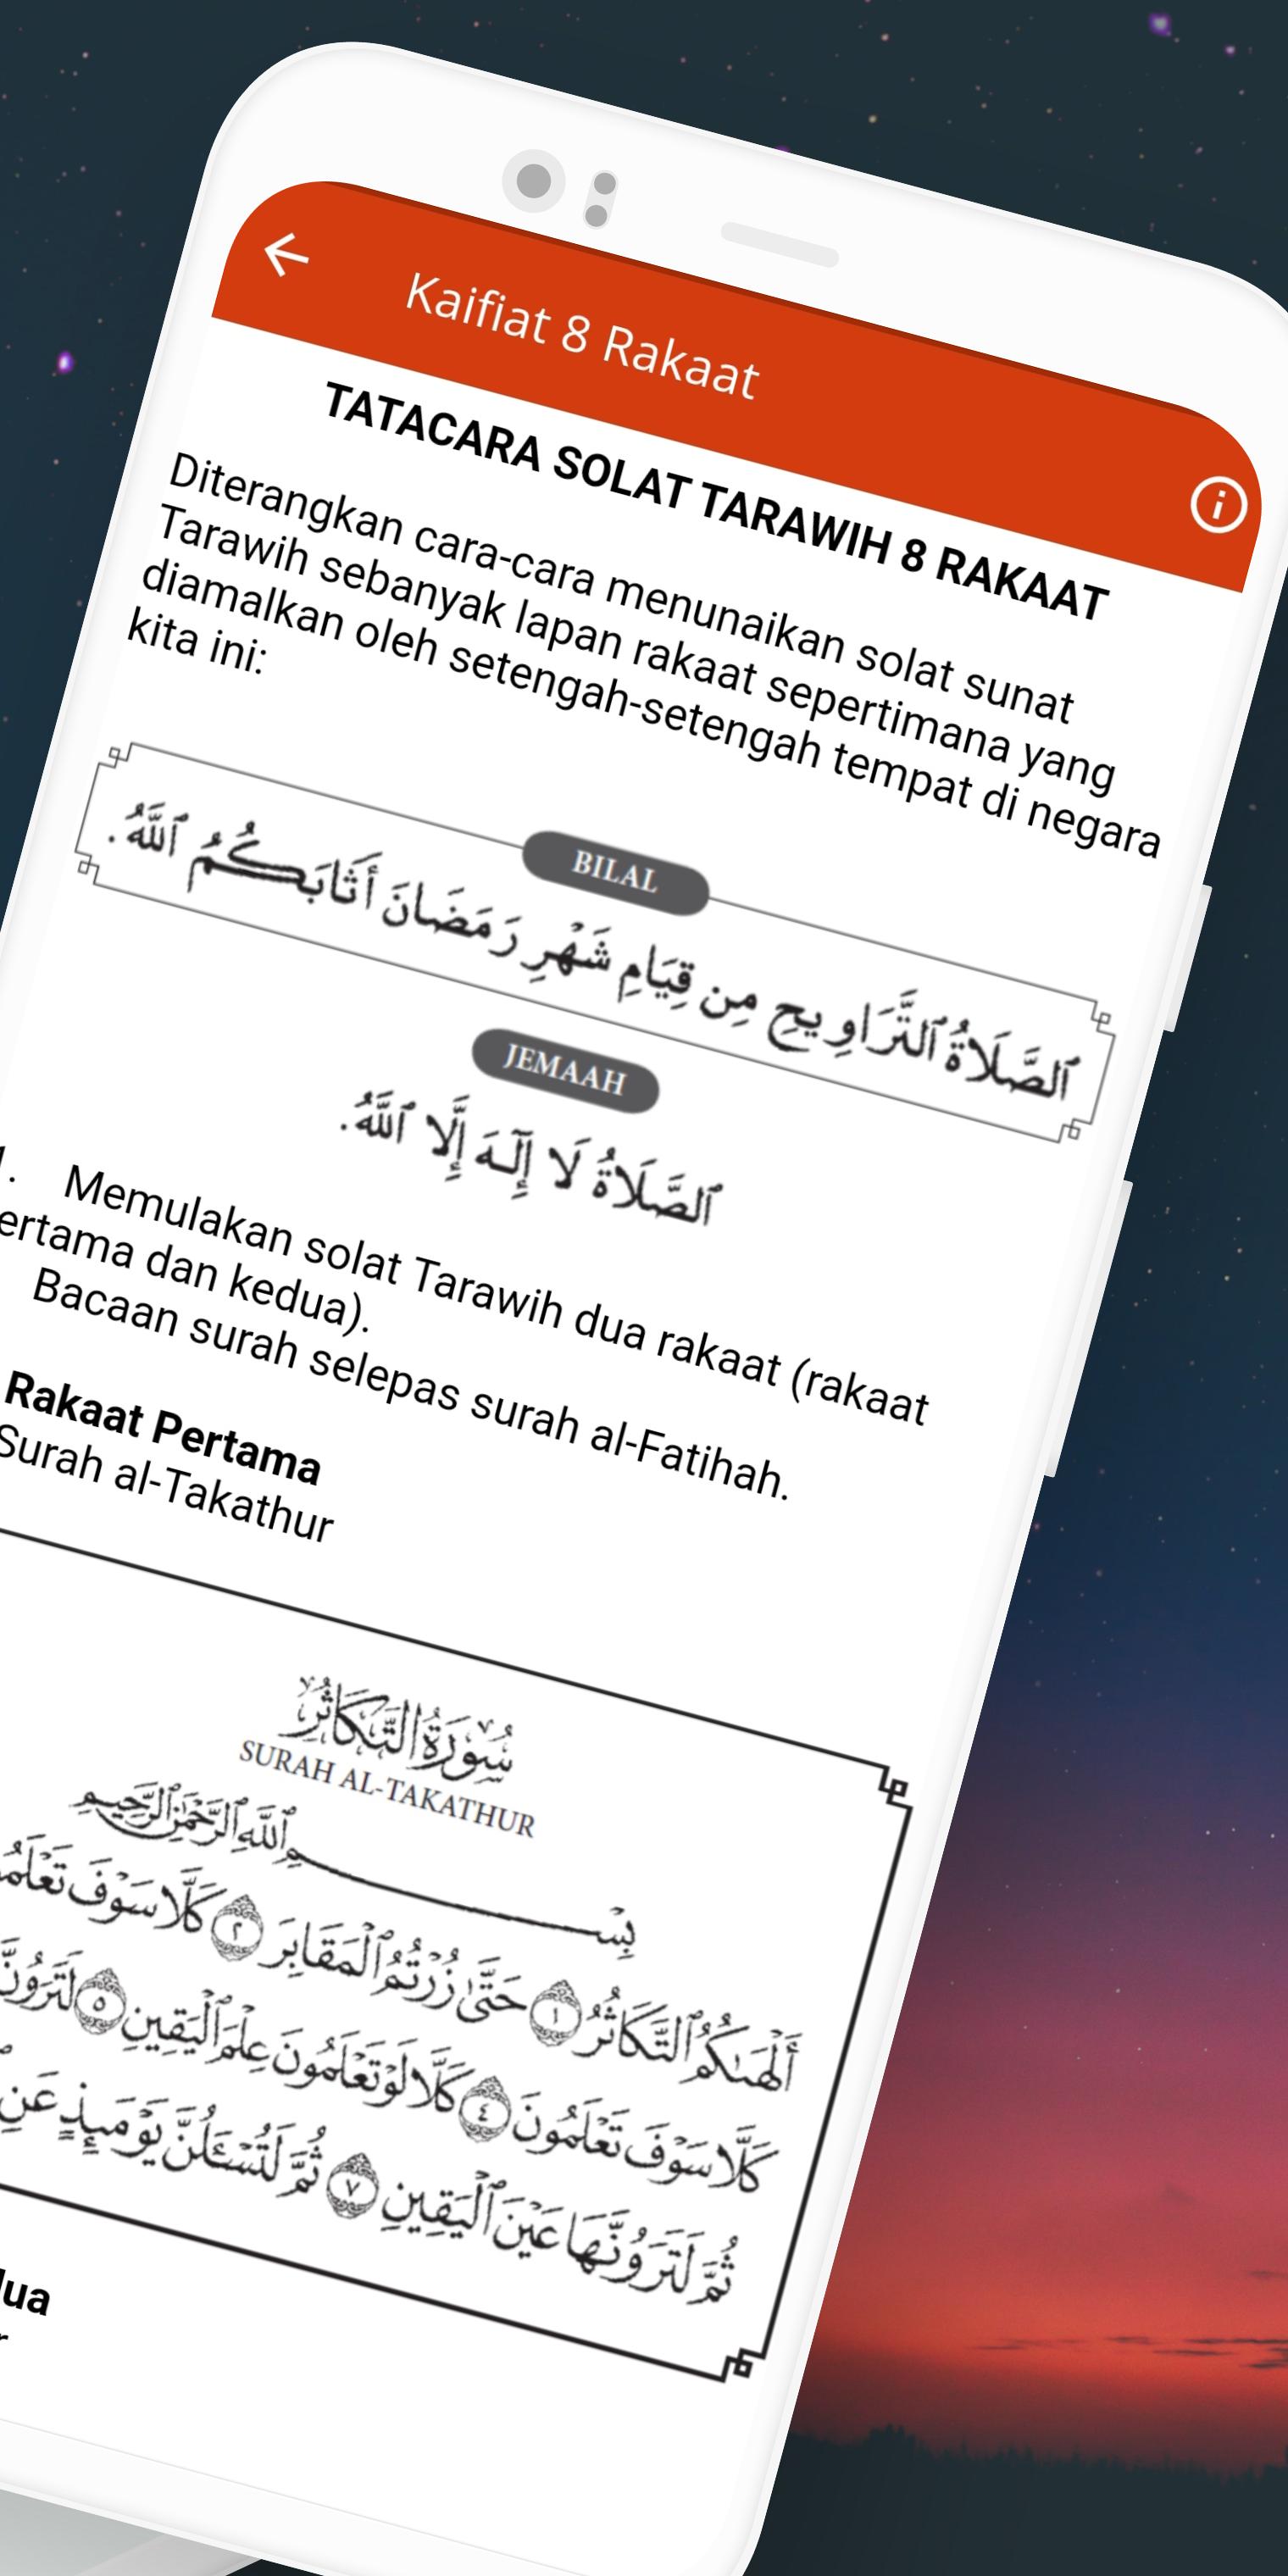 Kaifiat 8 Rakaat
TATACARA SOLAT TARAWIH 8 RAKAAT
Diterangkan cara-cara menunaikan solat sunat
Tarawih sebanyak lapan rakaat sepertimana yang
diamalkan oleh setengah-setengah tempat di negara
kita ini:
BILAL
ٱلصَّلَاةُ ٱلتَّرَاوِيحِ مِن قِيَامِ شَهْرِ رَمَضَانَ أَثَابَكُمُ ٱللَّهُ.
JEMAAH
ٱلصَّلَاةُ لَا إِلَٰهَ إِلَّا ٱللَّهُ.
1. Memulakan solat Tarawih dua rakaat (rakaat
ertama dan kedua).
Bacaan surah selepas surah al-Fatihah.
Rakaat Pertama
Surah al-Takathur
سُورَةُ التَّكَاثُرِ
SURAH AL-TAKATHUR
بِسْمِ ٱللَّهِ ٱلرَّحْمَٰنِ ٱلرَّحِيمِ
أَلْهَىٰكُمُ ٱلتَّكَاثُرُ ١ حَتَّىٰ زُرْتُمُ ٱلْمَقَابِرَ ٢ كَلَّا سَوْفَ
كَلَّا سَوْفَ تَعْلَمُونَ ٤ كَلَّا لَوْ تَعْلَمُونَ عِلْمَ ٱلْيَقِينِ ٥ لَتَرَوُنَّ
ثُمَّ لَتَرَوُنَّهَا عَيْنَ ٱلْيَقِينِ ٧ ثُمَّ لَتُسْـَٔلُنَّ يَوْمَئِذٍ عَنِ
dua
r